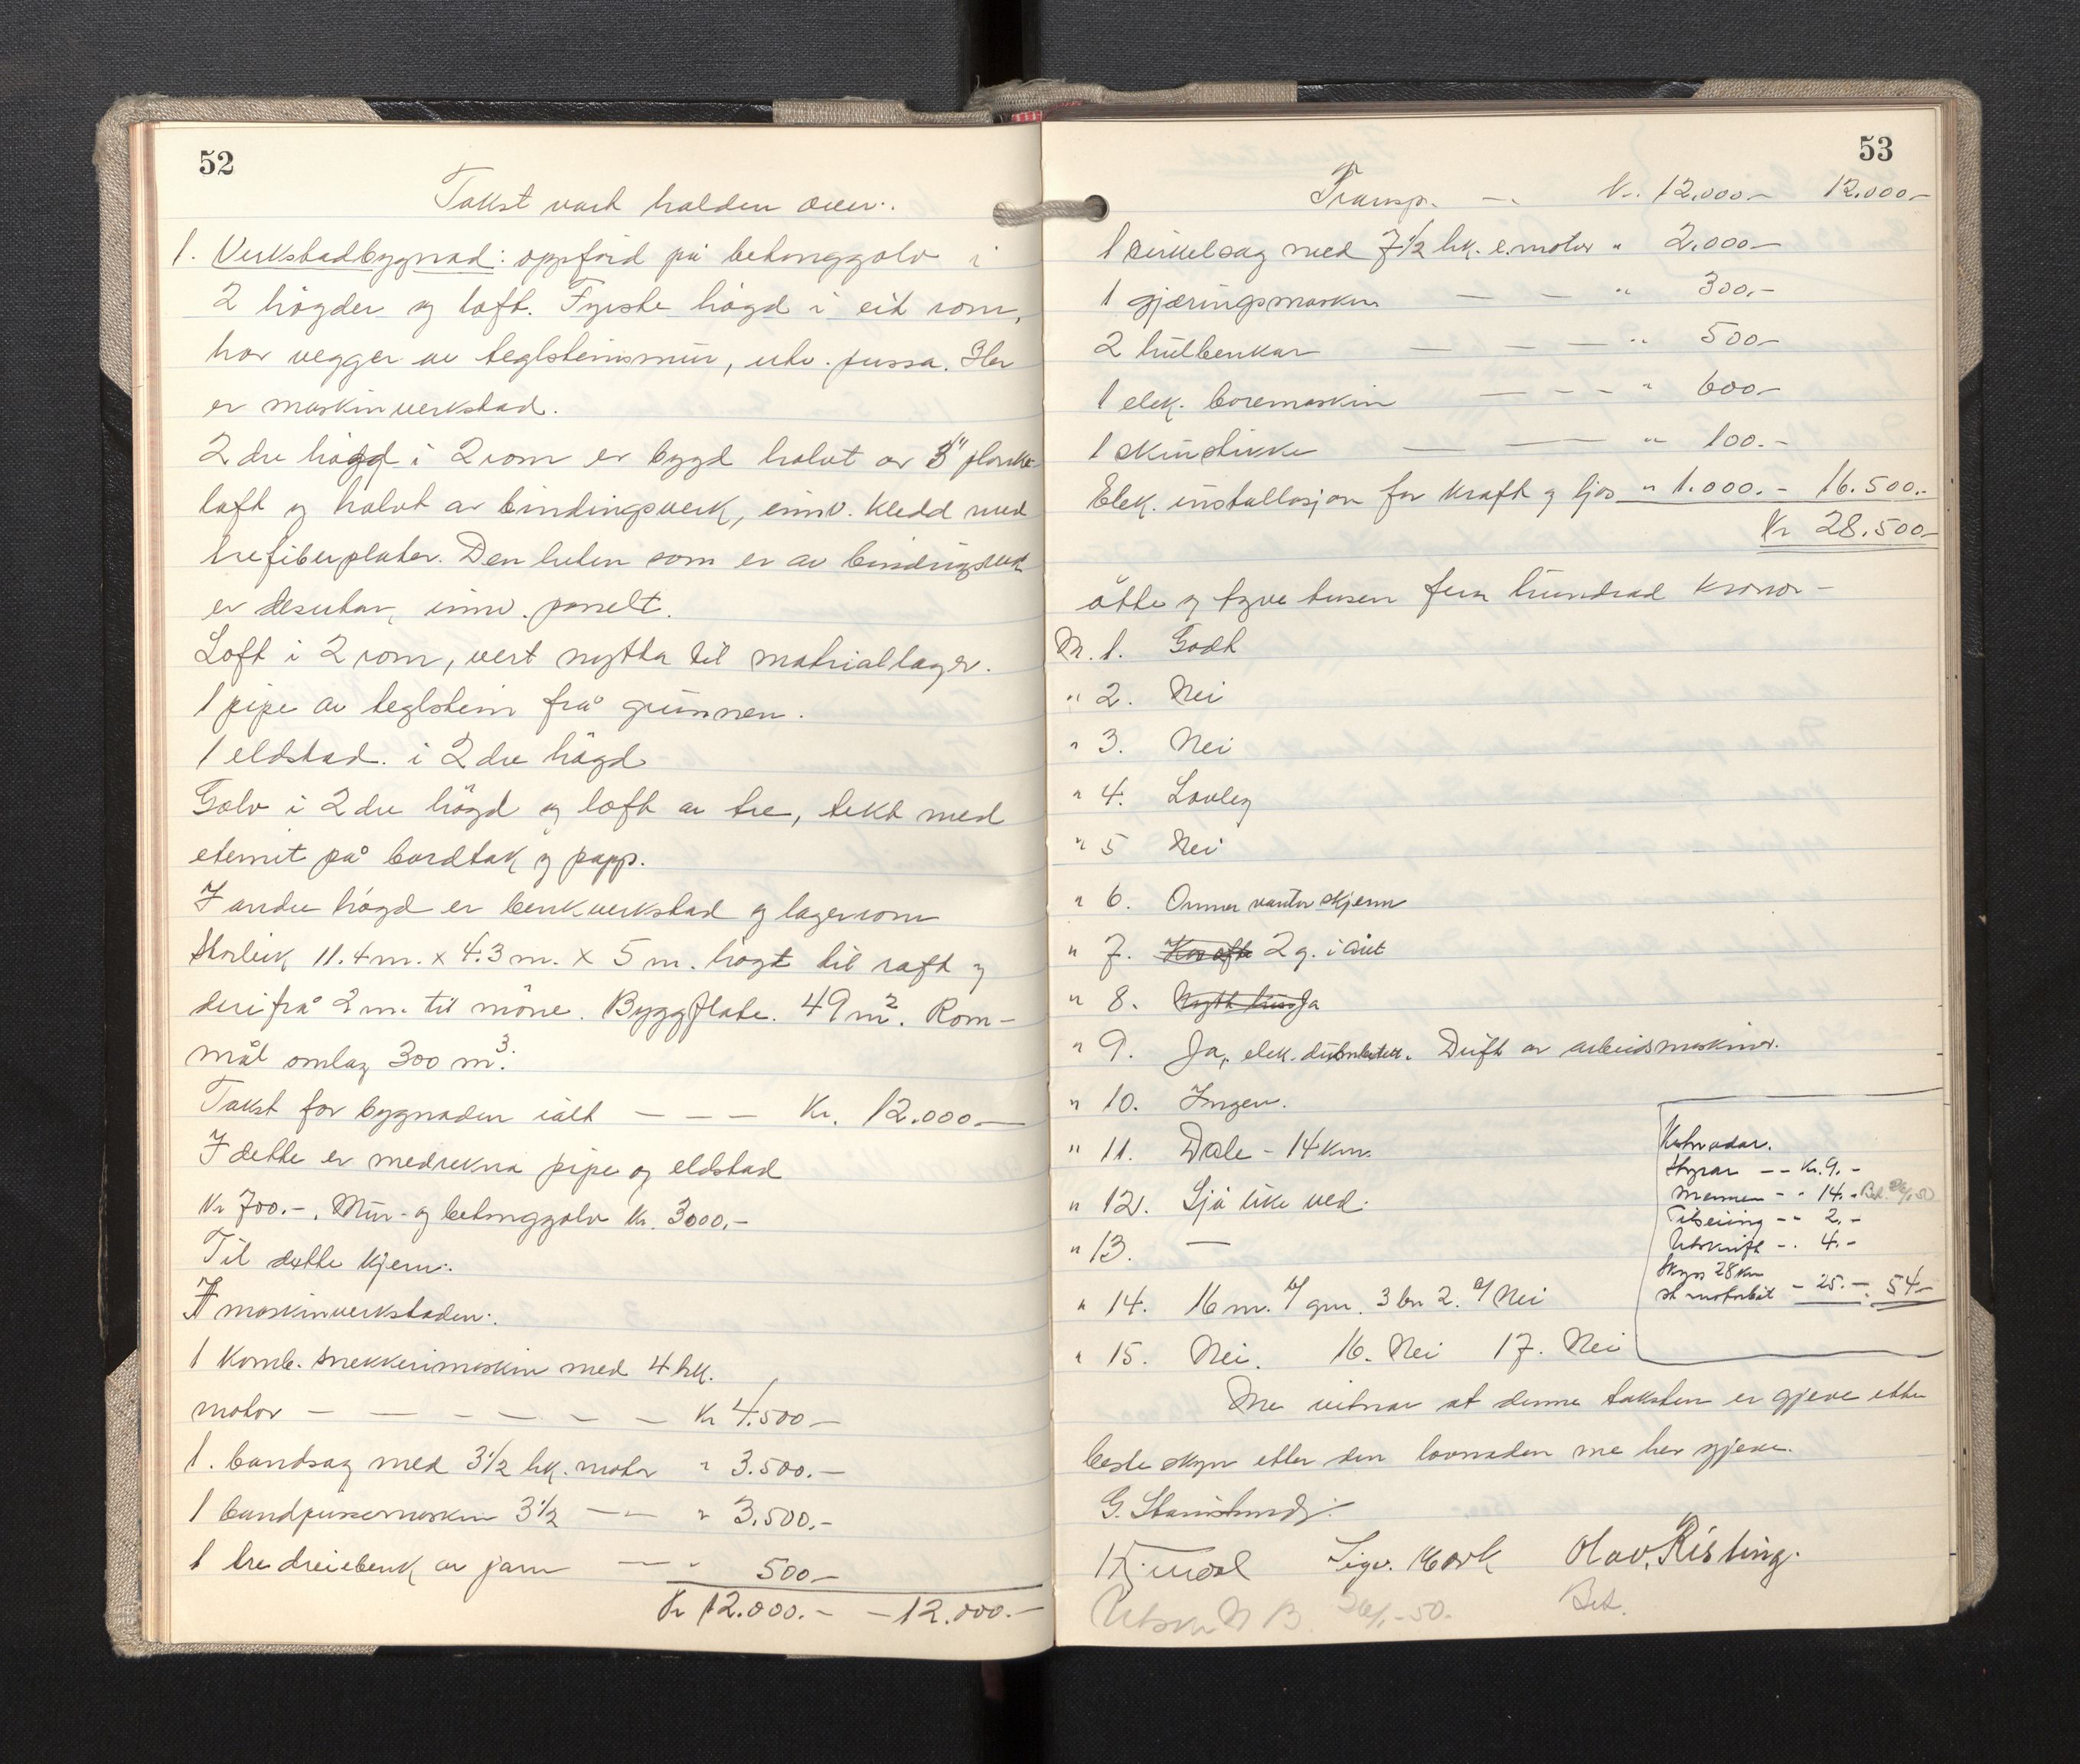 52
Takst vart halden over:
1. Verkstadbygnad: oppförd på betonggolv i
2 högder og loft. Fyrste högd i eit rom,
har vegger av teglsteinsmur, utv. pussa. Her
er maskinverkstad.
2 dre högd i 2 rom er bygd halvt av 3" planke-
loft og halvt av bindingsverk, innv. kledd med
trefiberplater. Den luten som er av bindingsverk
er desutan, innv. panelt.
Loft i 2 rom, vert nytta til matriallager.
1 pipe av teglstein frå grunnen.
1 eldstad. i 2 dre högd
Golv i 2 dre högd og loft av tre, tekt med
eternit på bordtak og papp.
I andre högd er benkverkstad og lagerrom
Storleik 11.4 m. x 4.3 m. x 5 m. högt til raft og
derifrå 2 m. til möne. Byggflate. 49 m². Rom-
mål omlag 300 m³.
Takst for bygnaden ialt — — — Kr. 12.000.—
I dette er medrekna pipe og eldstad
Kr 700.-, Mur- og betonggolv Kr. 3000,-
Til dette kjem:
I maskinverkstaden:
1 Komb. snekkerimaskin med 4 hk.
motor — — — — — — Kr 4.500—
1. bandsag med 3½ hk. motor " 3.500.—
1 bandpussemaskin 3½ — — " 3.500.-
1 tre dreiebenk av jarn — " 500—
Kr 12.000.- - 12.000.-
53
Transp. — . Kr. 12.000— 12.000—
1 sirkelsag med 7½ hk. e. motor " 2.000—
1 gjæringsmaskin — — " 300.-
2 hulbenkar — — — " 500—
1 elek. boremaskin — — — " 600—
1 skinstikke — — " 100.-
Elek. installasjon for kraft og ljos " 1.000.- 16.500.-
Kr 28.500—
åtte og tyve tusen fem hundrad kronor—
Nr. 1. Godt
" 2. Nei
" 3. Nei
" 4. Lovleg
" 5 Nei
" 6. Onnor vantar skjerm
" 7. 2 g. i året
" 8. Ja
" 9. Ja, elek. Drift av arbeidsmaskiner.
" 10. Ingen.
" 11. Dale - 14 km.
" 12. Sjå like ved.
" 13. —
" 14. 16 m. b/ gm. 3 br 2. c/ Nei
" 15. Nei. 16. Nei 17. Nei
Kostnadar.
Styrar — — Kr. 9.-
Mennen - - 14.-
Tilseiing -- 2.-
Utskrift -. 4.-
Skyss 28 km
m motorbåt - 25.-. 54—
Me vitnar at denne taksten er gjeve etter
beste skyn etter den lovnaden me har gjeve.
Sigv. Olav. Risting.
Utskr. N B. 26/1-50. Bet.